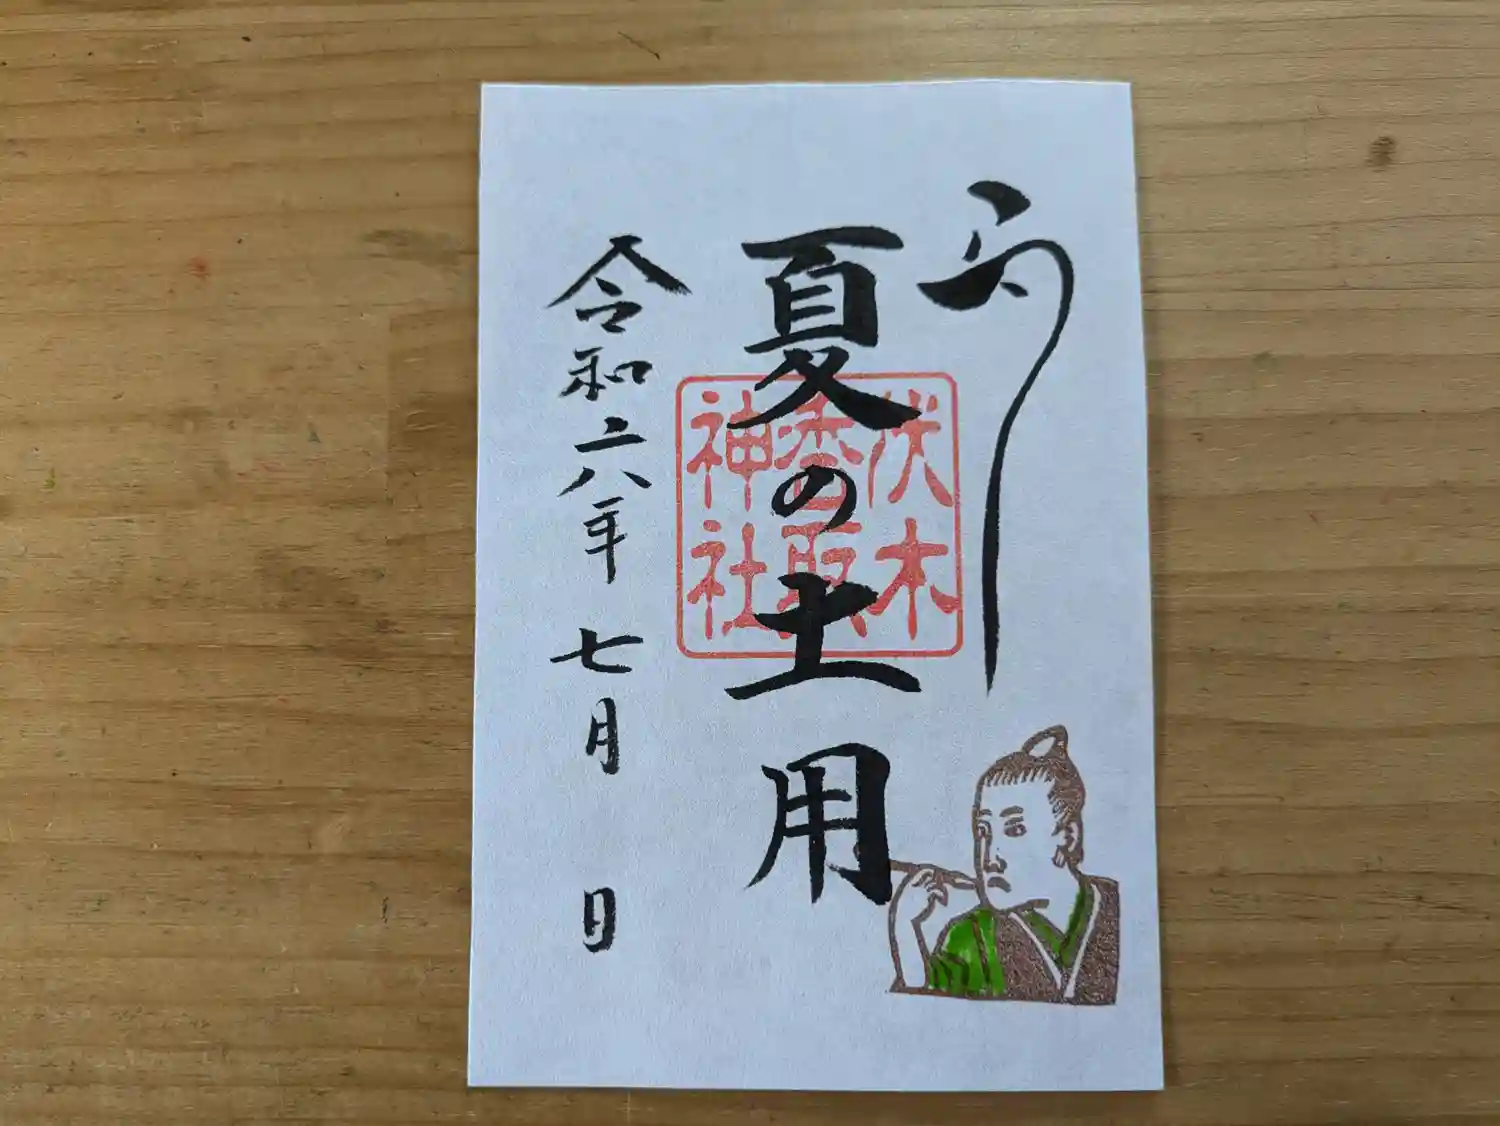 う
夏の土用
伏木
香取
神社
令和六年七月 日